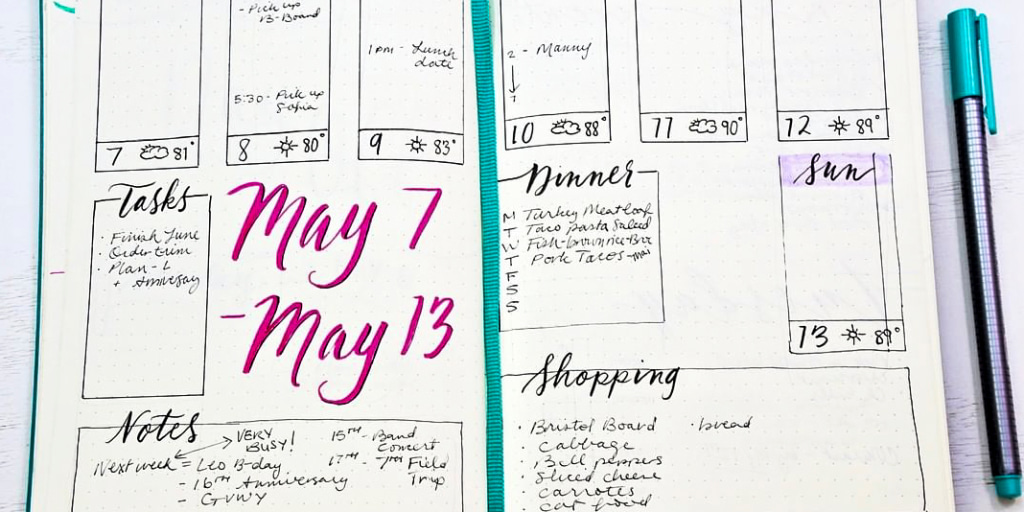 - Pick up
B-Board
5:30 - Pick up
Sofia
7 81°
8 80°
1pm - Lunch
date
9 83°
Tasks
· Finish June
· Order trim
· Plan - L
+ Anniversay
May 7
- May 13
Notes
VERY
BUSY!
Next week = Leo B-day
- 16th Anniversary
- GVWY
15TH - Band
Concert
17TH - 7th Field
Trip
2 - Manny
10 88°
11 90°
12 89°
Dinner
M Turkey Meatloaf
T Taco pasta Salad
W Fish-brown rice-Bro
T Pork Tacos
F
S
S
Sun
13 89°
Shopping
· Bristol Board
· cabbage
· Bell peppers
· Sliced cheese
· carrotes
· cat food
· bread